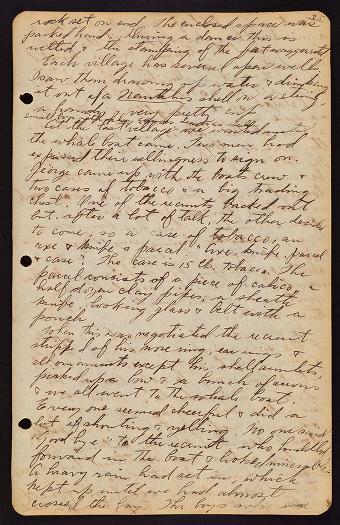 rock set on end. The enclosed space was
packed hard. During a dance this is
wetted & the stamping of the feet
Each village has several open wells
I saw them drawing up water & drinking
it out of a Nautilus shell on a string
a very pretty
At the last village we waited until
the whale boat came. Two men had
expressed their willingness to sign on.
George came up with the boat crew &
two cases of tobacco & a big trading
chest. One of the recruits backed out
but after a lot of talk, the other decided
to come, so a case of tobacco, an
axe & knife & parcel. "Axe, knife, parcel
& case". The case is 15 lb. tobacco. The
parcel consists of a piece of calico, a
half dozen clay pipes, a sheath
knife, looking glass & belt with a
pouch
When this was negotiated the recruit
stripped of his nose ring, earrings &
all ornaments except his shell armlets,
picked up a bow & a bunch of arrows
& we all went to the whale boat.
Every one seemed cheerful & did a
lot of shouting & yelling. No one said
"good bye" to the recruit who huddled
forward in the boat & looked miserable.
A heavy rain had set in, which
kept up until we had almost
crossed the bay. The boys